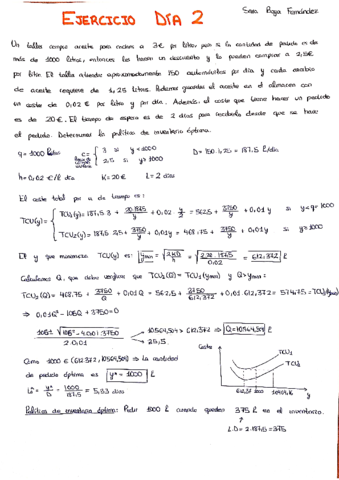 EJERCICIO DÍA 2
Sara Raya Fernández
Un taller compra aceite para coches a 3€ por litro, pero si la cantidad de pedido es de
más de 1000 litros, entonces les hacen un descuento y lo pueden comprar a 2,5€
por litro. El taller atiende aproximadamente 150 automóviles por día y cada cambio
de aceite requiere de 1,25 litros. Además guardar el aceite en el almacén con
un coste de 0,02 € por litro y por día. Además, el coste que tiene hacer un pedido
es de 20€. El tiempo de espera es de 2 días para recibirlo desde que se hace
el pedido. Determinar la política de inventario óptima.
q = 1000 litros c = { 3 si y<1000 D = 150·1,25 = 187.5 l/día
2,5 si y>1000
h = 0,02 €/l día K = 20€ L = 2 días
El coste total por u. de tiempo es:
TCU(y) = { TCU₁(y) = 187,5·3 + 20·187,5/y + 0,02 y/2 = 562,5 + 3750/y + 0,01y si y<q=1000
TCU₂(y) = 187,5·2,5 + 3750/y + 0,01y = 468,75 + 3750/y + 0,01y si y>1000
El y que minimiza TCU(y) es: ymin = √(2KD/h) = √(2·20·187,5/0,02) = 612,372 l
Calculemos Q, que debe verificar que TCU₂(Q) = TCU₁(ymin) y Q>ymin:
TCU₂(Q) = 468,75 + 3750/Q + 0,01Q = 562,5 + 3750/612,372 + 0,01·612,372 = 574,75 = TCU₁(ymin)
⇒ 0,01Q² - 106Q + 3750 = 0
10564,504 > 612,372 ⇒ Q = 10564,504 l
Como 1000 ∈ (612,372, 10564,504) ⇒ la cantidad
de pedido óptima es y* = 1000 l
t₀* = y*/D = 1000/187.5 = 5,33 días
Coste
TCU₁
TCU₂
y
Política de inventario óptima: Pedir 1000 l cuando queden 375 l en el inventario.
L·D = 2·187,5 = 375